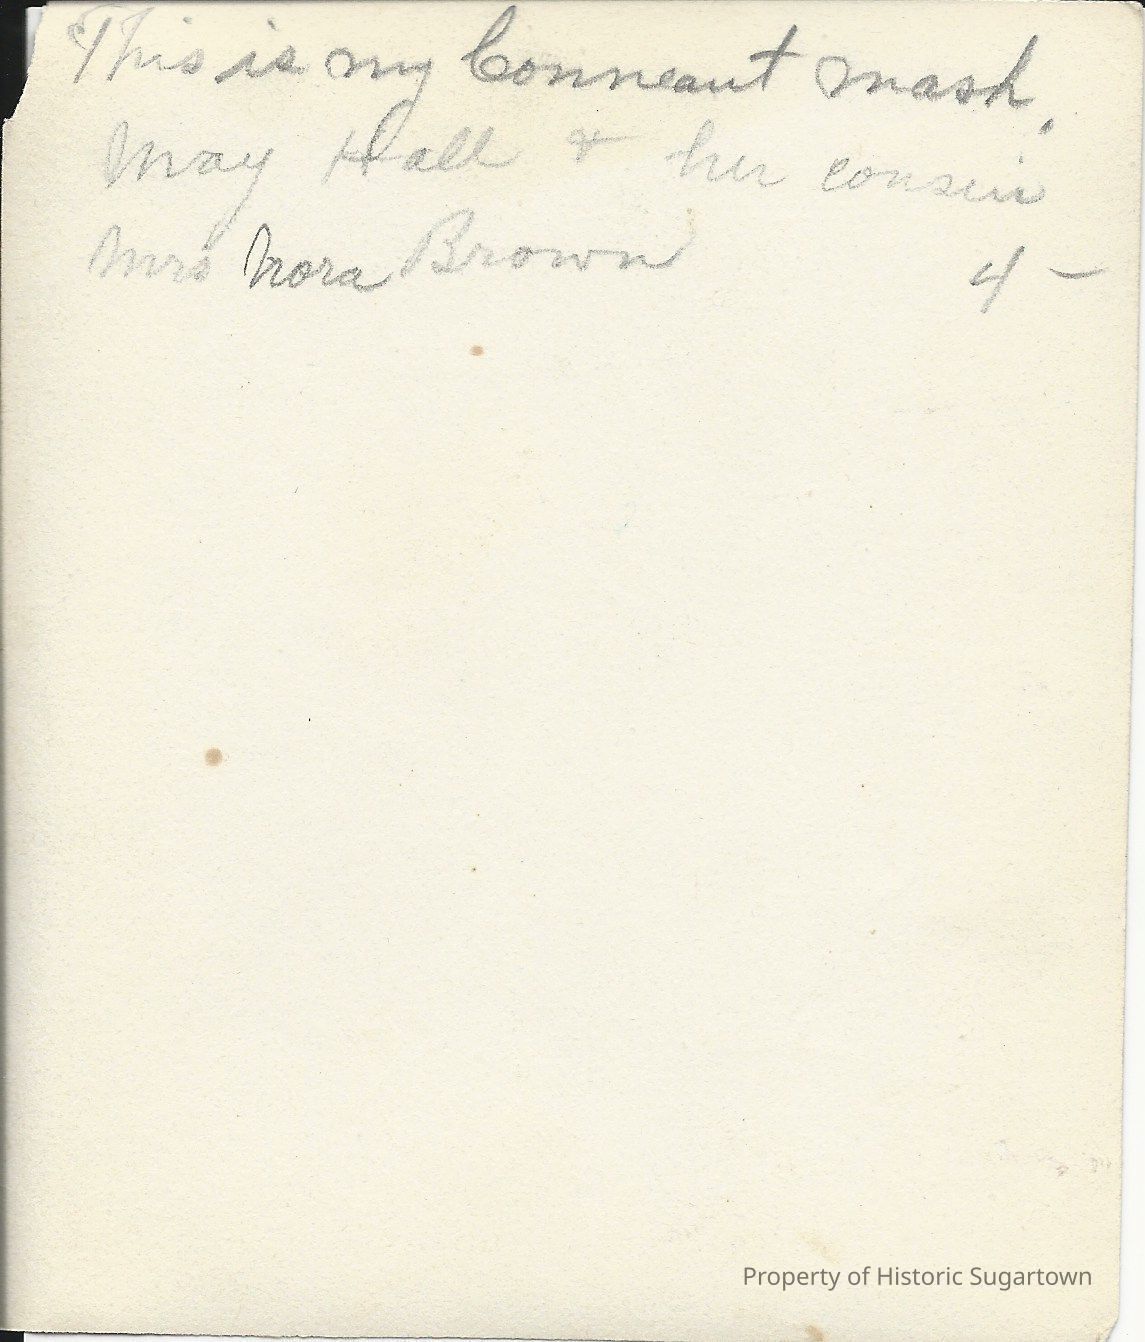 This is my Conneaut mash.
May Hall & her cousin
Mrs Nora Brown 4 –
Property of Historic Sugartown